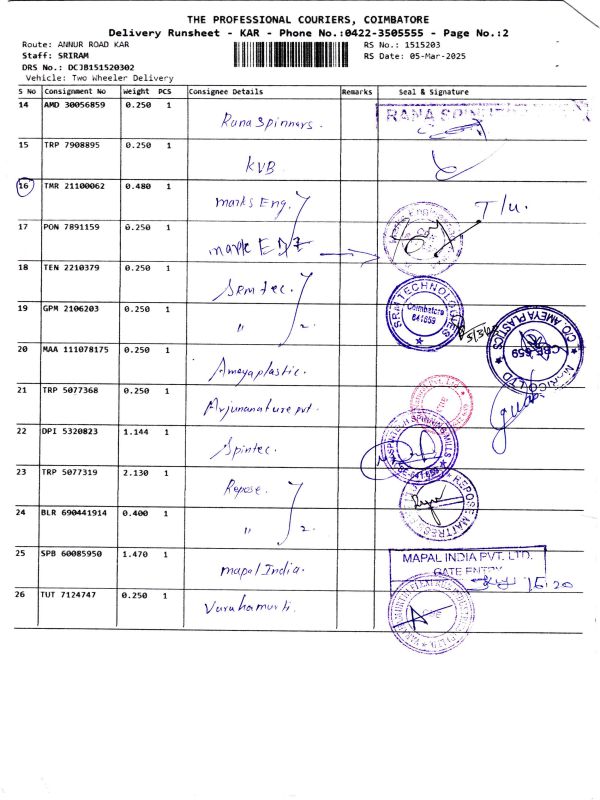 THE PROFESSIONAL COURIERS, COIMBATORE
Delivery Runsheet - KAR - Phone No.:0422-3505555 - Page No.:2
Route: ANNUR ROAD KAR
RS No.: 1515203
Staff: SRIRAM
RS Date: 05-Mar-2025
DRS No.: DCJB151520302
Vehicle: Two Wheeler Delivery
S No Consignment No Weight PCS Consignee Details Remarks Seal & Signature
14 AMD 30056859 0.250 1 Rana Spinners. RANA SPINNERS
15 TRP 7908895 0.250 1 KVB
16 TMR 21100062 0.480 1 marks Eng. T/u.
17 PON 7891159 0.250 1 mark
18 TEN 2210379 0.250 1 Srmtec. SRM TECHNOLOGIES Coimbatore 641659
19 GPM 2106203 0.250 1 " 2. C/O. AMEYA PLASTICS CBE-659
20 MAA 111078175 0.250 1 Ameyaplastic.
21 TRP 5077368 0.250 1 Arjunanature pvt.
22 DPI 5320823 1.144 1 Spintec. SPINTECH SPINNING MILLS
23 TRP 5077319 2.130 1 Repose. REPOSE MATTRESS
24 BLR 690441914 0.400 1 " 2.
25 SPB 60085950 1.470 1 mapal India. MAPAL INDIA PVT. LTD. GATE ENTRY 15:20
26 TUT 7124747 0.250 1 Varahamurti.